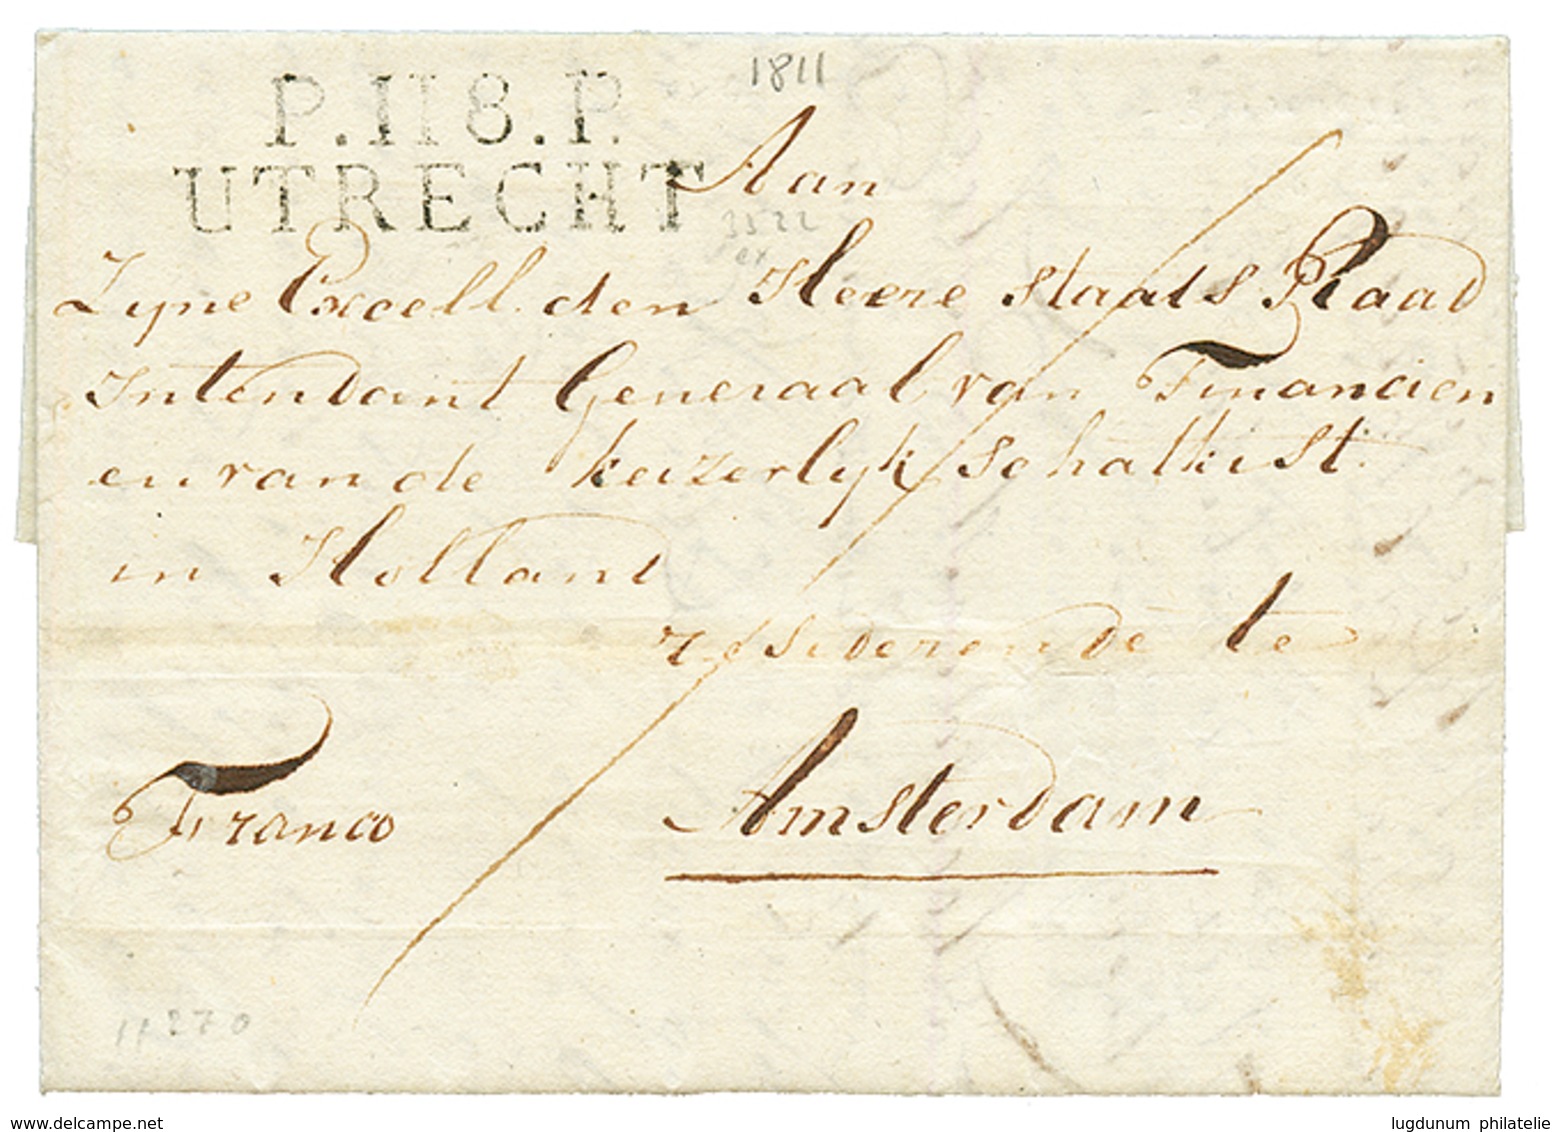 1811
P.118.P.
UTRECHT
Aan
3522
ex
Zyne Excell. den Heere Staats Raad
Intendant Generaal van Financien
en van de keizerlyk Schatkist.
in Holland
resederende te
Franco
Amsterdam
11270
www.delcampe.net
lugdunum philatelie